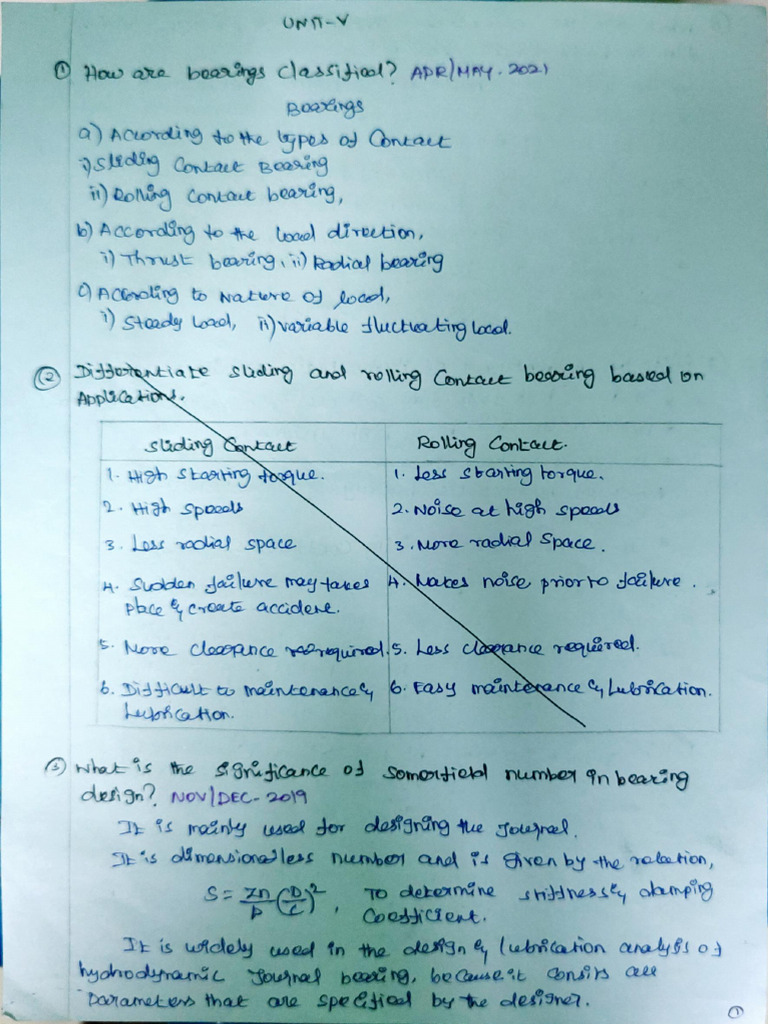 UNIT-V
① How are bearings classified? APR/MAY-2021
Bearings
a) According to the types of Contact
i) Sliding Contact Bearing
ii) Rolling Contact bearing,
b) According to the load direction,
i) Thrust bearing, ii) Radial bearing
c) According to Nature of load,
i) Steady load, ii) variable fluctuating load.
② Differentiate sliding and rolling Contact bearing based on
Applications.
Sliding Contact
Rolling Contact.
1. High starting torque.
1. Less starting torque.
2. High speeds
2. Noise at high speeds
3. Less radial space
3. More radial space.
4. Sudden failure may takes
place & create accident.
4. Makes noise prior to failure.
5. More clearance required.
5. Less clearance required.
6. Difficult to maintenance &
Lubrication.
6. Easy maintenance & Lubrication.
③ What is the significance of Somerfield number in bearing
design? NOV/DEC-2019
It is mainly used for designing the Journal.
It is dimensionless number and is given by the relation,
S = Zn/P (D/C)², To determine stiffness & damping
Coefficient.
It is widely used in the design & lubrication analysis of
hydrodynamic Journal bearing, because it consits all
Parameters that are specified by the designer.
①